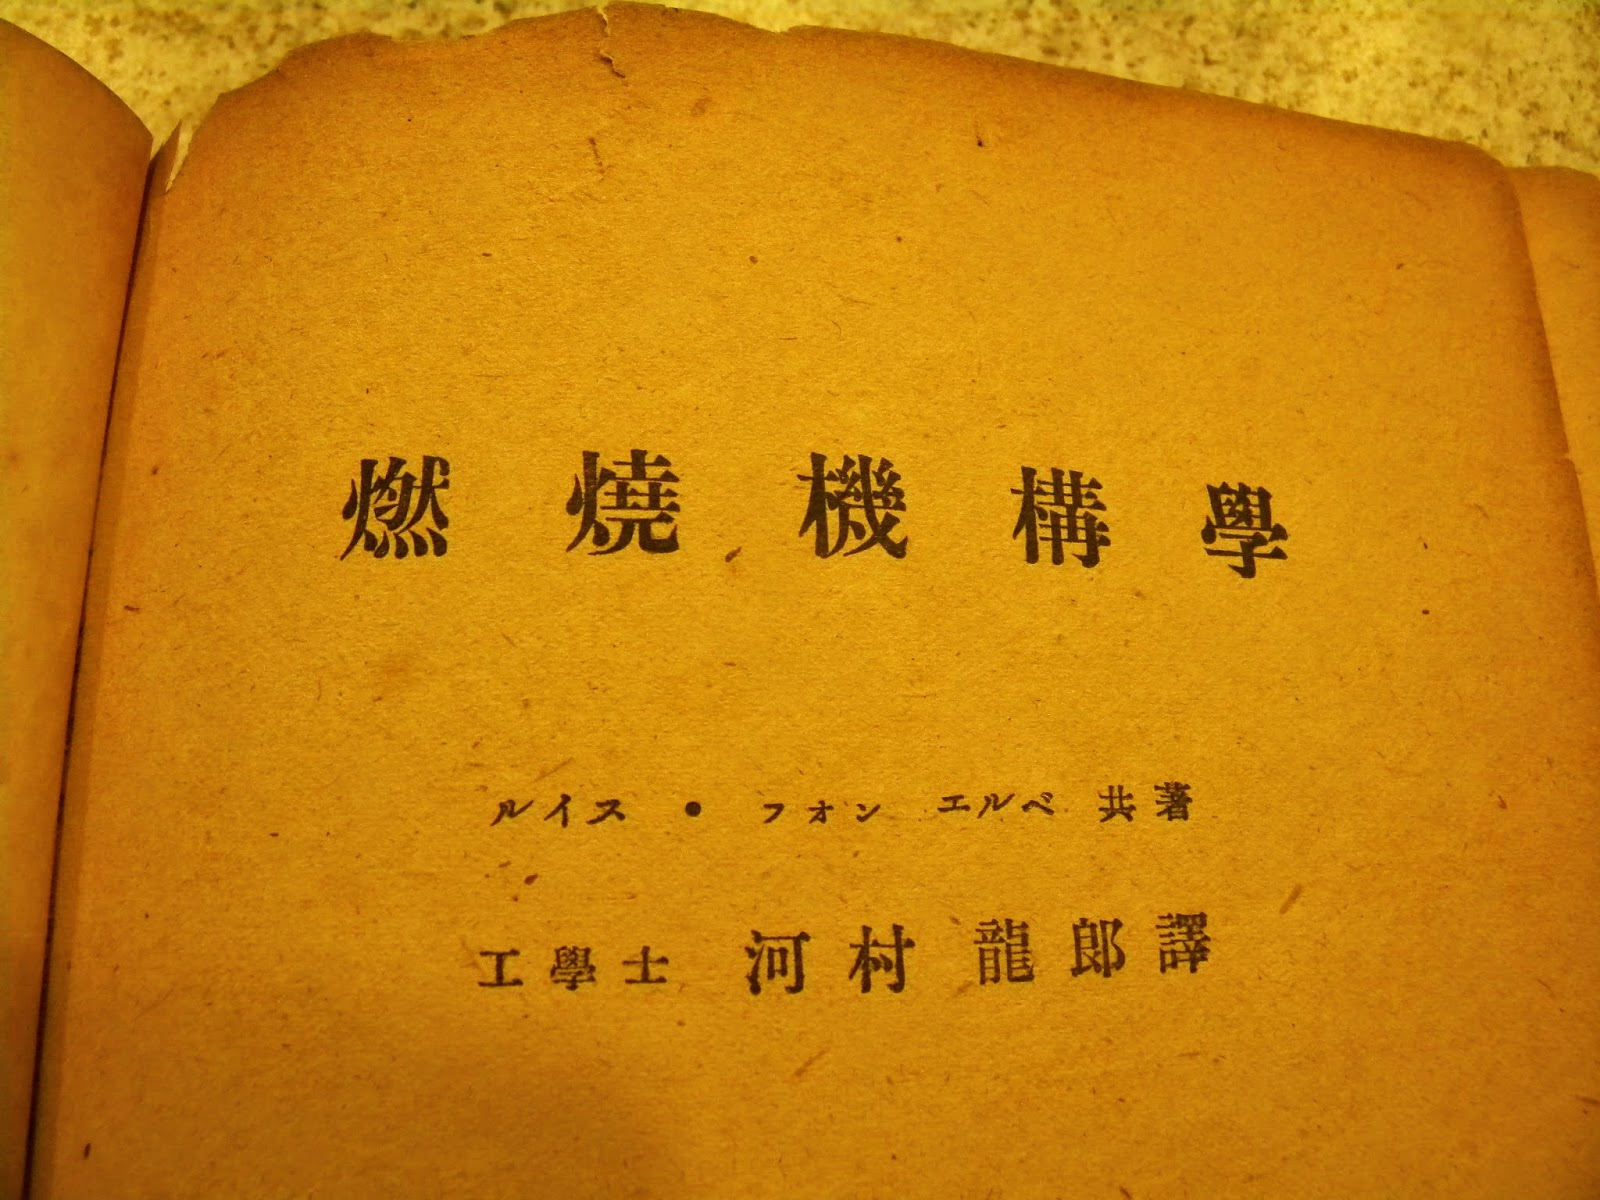 燃燒機構學
ルイス・フォン エルベ 共著
工學士 河村龍郎譯